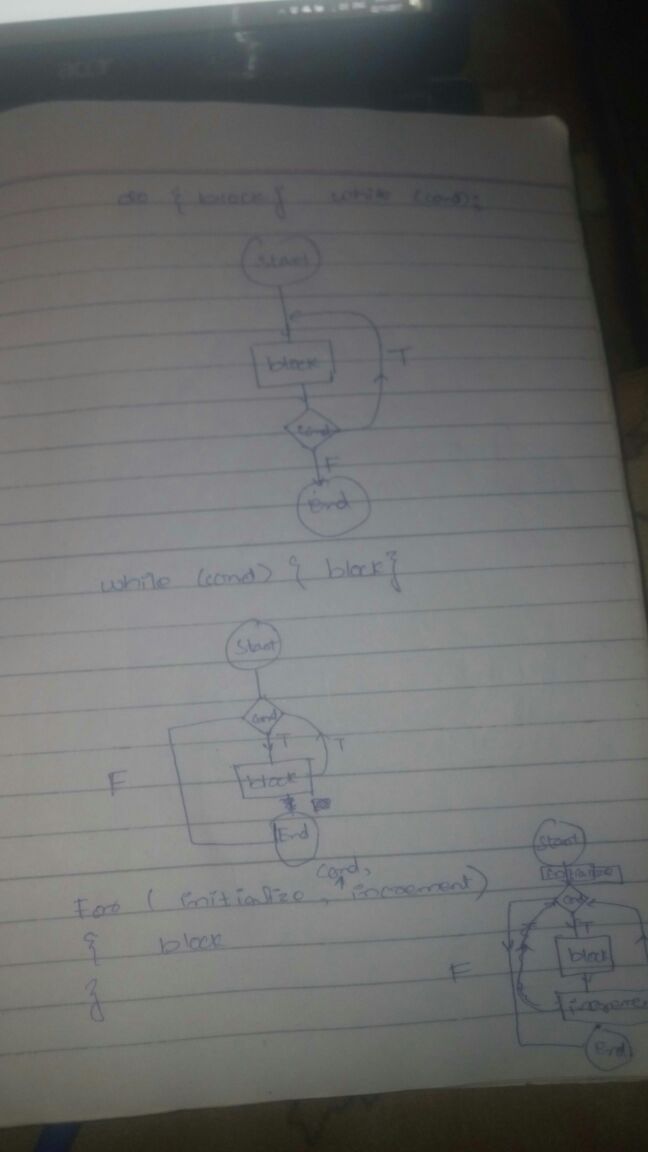 acer
do { block } while (cond);
Start
block
T
cond
F
End
while (cond) { block}
Start
cond
T
T
F
block
End
cond,
For ( initialize, increment)
{ block
}
Start
initialize
cond
T
block
F
increme
End